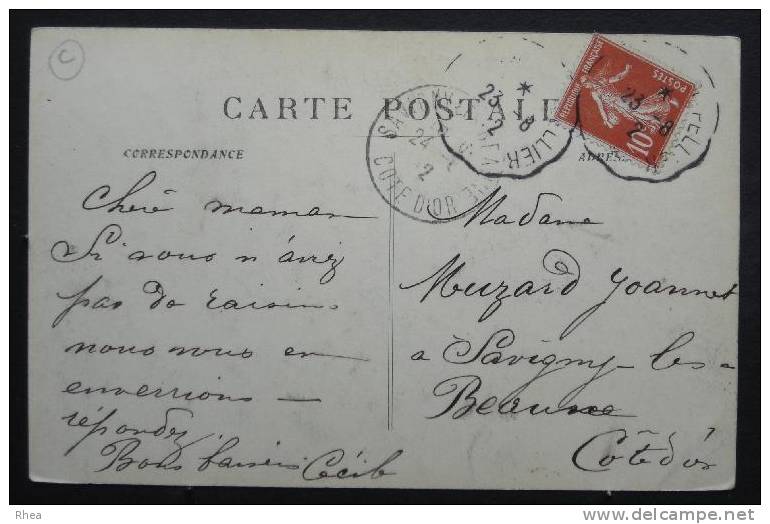 C
RÉPUBLIQUE FRANÇAISE
POSTES
10
23 -8
2
LLIER
23 -8
2
ELLI
SAVIGNY
24 -8
2
COTE D'OR
CARTE POSTALE
CORRESPONDANCE
ADRESSE
Chère maman
Si vous n'avez
pas de raisins
nous vous en
enverrions —
répondez
Bons baisers Cécile
Madame
Muzard Joannet
à Savigny-les-
Beaune
Côte d'or
Rhea
www.delcampe.net